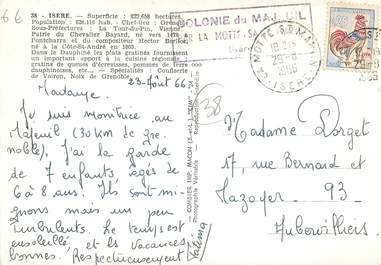 66
38 - ISERE. - Superficie : 823.658 hectares.
Population : 626.116 hab. - Chef-lieu : Grenoble
Sous-Préfectures : La Tour-du-Pin, Vienne
Patrie du Chevalier Bayard, né vers 1476 à
Pontcharra et du compositeur Hector Berlioz,
né à La Côte-St-André en 1803.
Dans le Dauphiné les plats gratinés fournissent
un important apport à la cuisine régionale :
gratins de queues d'écrevisses, pommes de terre
dauphinoises, etc... - Spécialités : Confiserie
de Voiron, Noix de Grenoble.
COLONIE du MAJEUIL
LA MOTTE
LA MOTTE
ISERE
1966
23-Août 66
Madame,
Je suis monitrice au
Majeuil (30 km de Gre-
noble). J'ai la garde
de 7 enfants, agés de
6 à 8 ans. Ils sont mi-
gnons mais un peu
turbulents. Le temps est
ensoleillé et les vacances
bonnes. Respectueusement
COMBIER IMP. MACON
38
Madame Dorget
57, rue Bernard et
Mazoyer - 93 -
Aubervilliers